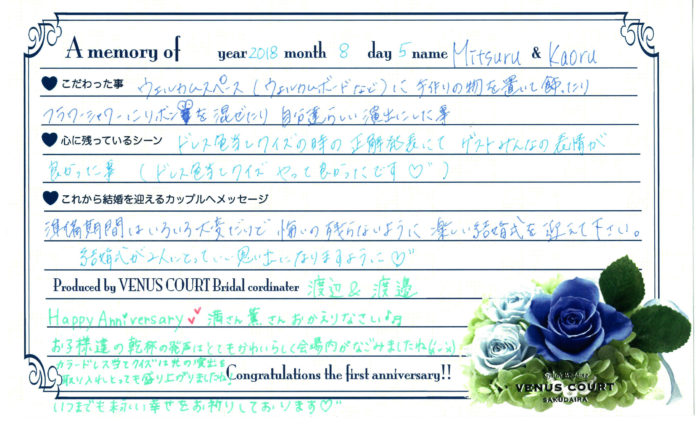 A memory of year 2018 month 8 day 5 name Mitsuru & Kaoru
こだわった事 ウェルカムスペース(ウェルカムボードなど)に 手作りの物を置いて飾ったり
フラワーシャワーにリボンを混ぜたり 自分達らしい演出にした事
心に残っているシーン ドレス色当てクイズの時の正解発表にて ゲストみんなの表情が
良かった事 (ドレス色当てクイズ やって良かったです♡")
これから結婚を迎えるカップルへメッセージ
準備期間はいろいろ大変だけど 悔いの残らないように 楽しい結婚式を迎えて下さい。
結婚式が2人にとっていい思い出になりますように♡"
Produced by VENUS COURT Bridal cordinater 渡辺 & 渡邉
Happy Anniversary 満さん 薫さん おかえりなさい♪
お子様達の乾杯の発声はとてもかわいらしく会場内がなごみましたね
カラードレス当てクイズは光の演出を
取り入れとっても盛り上がりましたね!
Congratulations the first anniversary!!
いつまでも末永い幸せをお祈りしております♡"
VENUS COURT
SAKUDAIRA